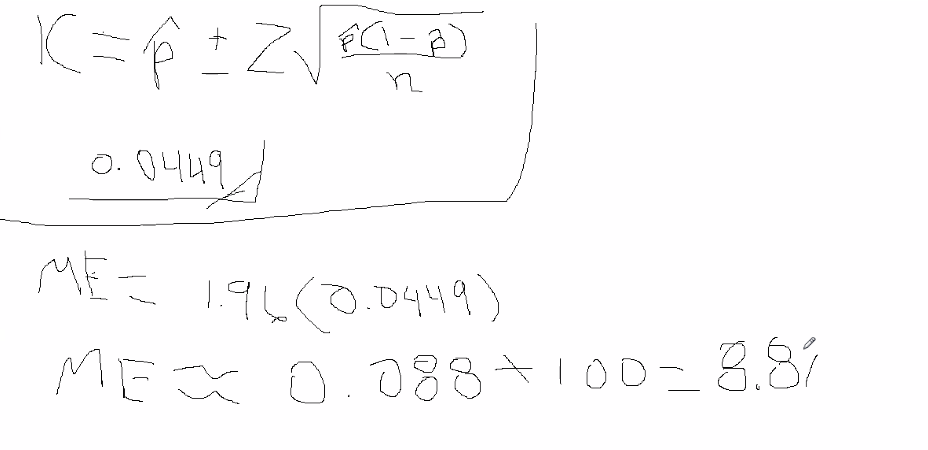 IC = p̂ ± Z √(p̂(1-p̂)/n)
0.0449
ME = 1.96(0.0449)
ME ≈ 0.088 × 100 = 8.8%